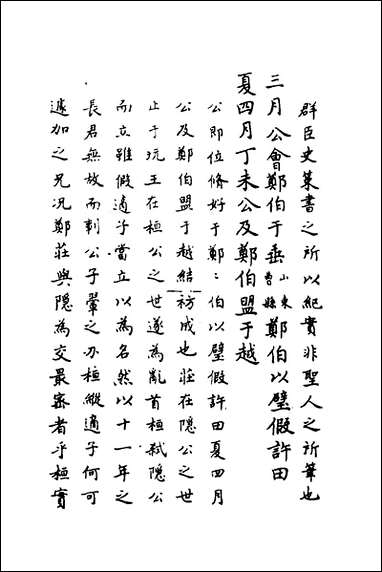 群臣史策書之所以紀實非聖人之所筆也
三月公會鄭伯于垂山東曹縣鄭伯以璧假許田
夏四月丁未公及鄭伯盟于越
公即位修好于鄭〻伯以璧假許田夏四月
公及鄭伯盟于越結祊成也莊在隱公之世
止于沅王在桓公之世遂為亂首桓弒隱公
而立雖假適子當立以為名然以十一年之
長君無故而刺公子翬之亦桓縱適子何可
遽加之兄况鄭莊與隱為交最密者乎桓實